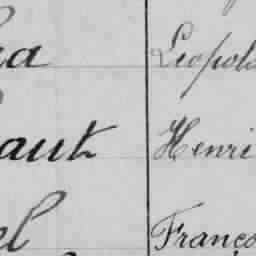 a Léopold
aut Henri
el Franço